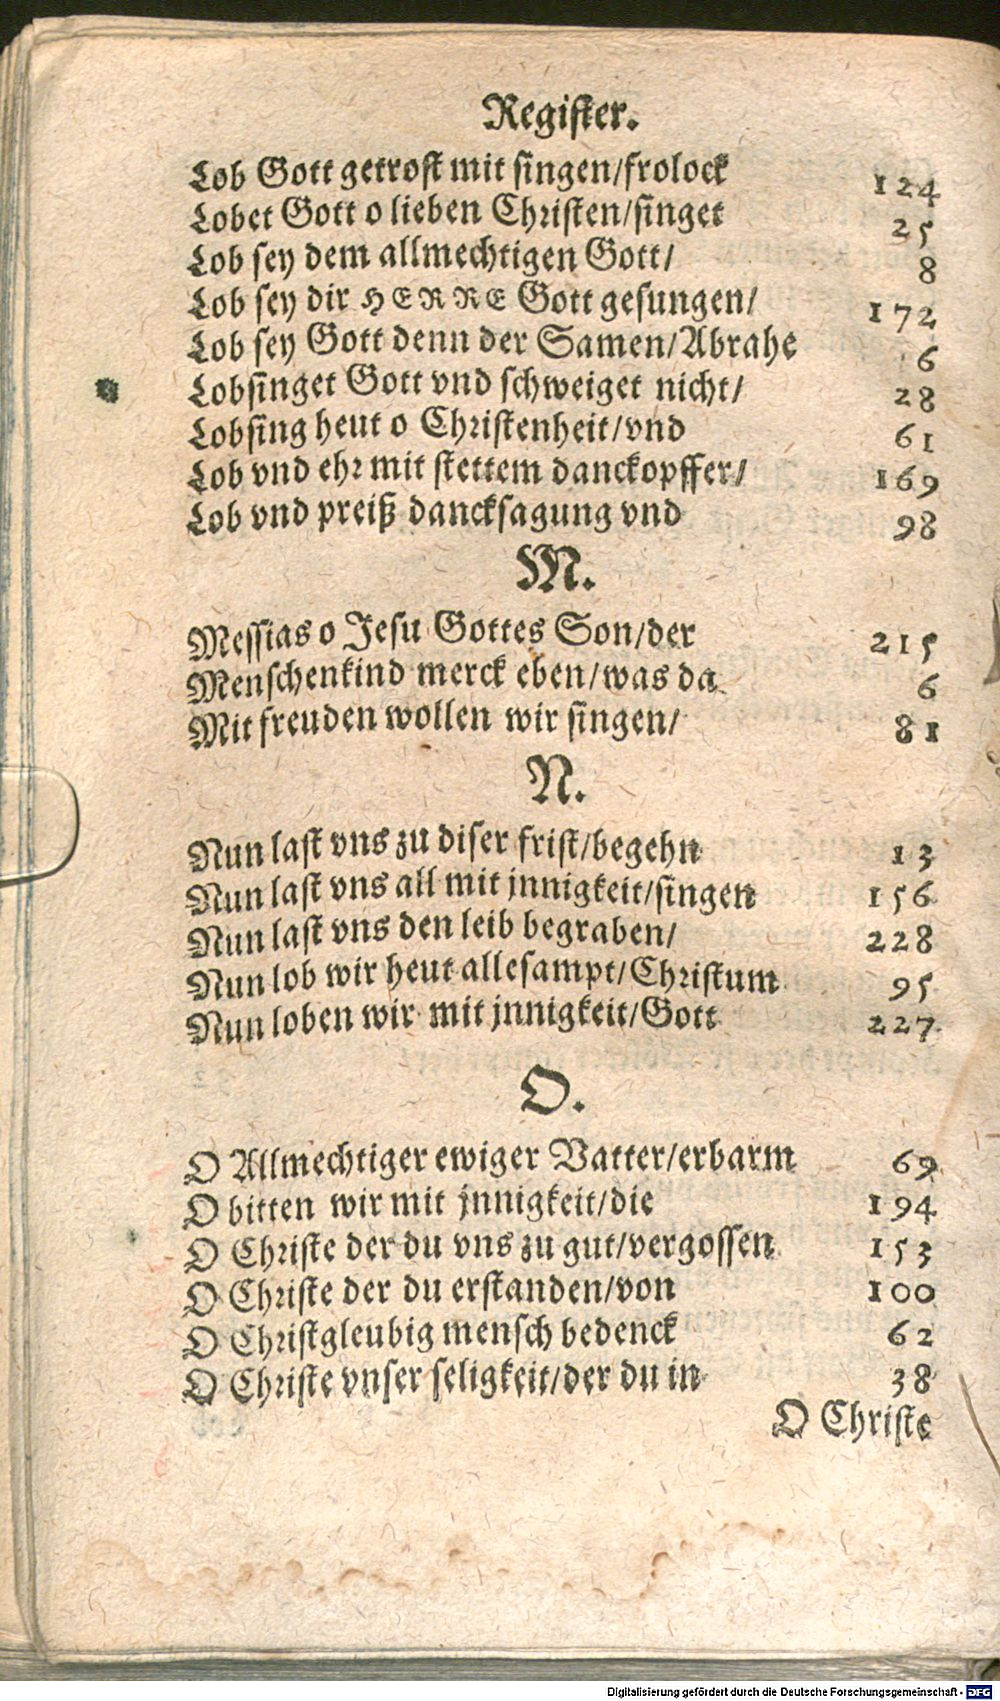 Register.
Lob Gott getrost mit singen/frolock 124
Lobet Gott o lieben Christen/singet 25
Lob sey dem allmechtigen Gott/ 8
Lob sey dir HERRE Gott gesungen/ 172
Lob sey Gott denn der Samen/Abrahe 6
Lobsinget Gott vnd schweiget nicht/ 28
Lobsing heut o Christenheit/vnd 61
Lob vnd ehr mit stettem danckopffer/ 169
Lob vnd preiß dancksagung vnd 98
M.
Messias o Jesu Gottes Son/der 215
Menschenkind merck eben/was da 6
Mit freuden wollen wir singen/ 81
N.
Nun last vns zu diser frist/begehn 13
Nun last vns all mit jnnigkeit/singen 156
Nun last vns den leib begraben/ 228
Nun lob wir heut allesampt/Christum 95
Nun loben wir mit jnnigkeit/Gott 227
O.
O Allmechtiger ewiger Vatter/erbarm 69
O bitten wir mit jnnigkeit/die 194
O Christe der du vns zu gut/vergossen 153
O Christe der du erstanden/von 100
O Christgleubig mensch bedenck 62
O Christe vnser seligkeit/der du in 38
O Christe
Digitalisierung gefördert durch die Deutsche Forschungsgemeinschaft - DFG